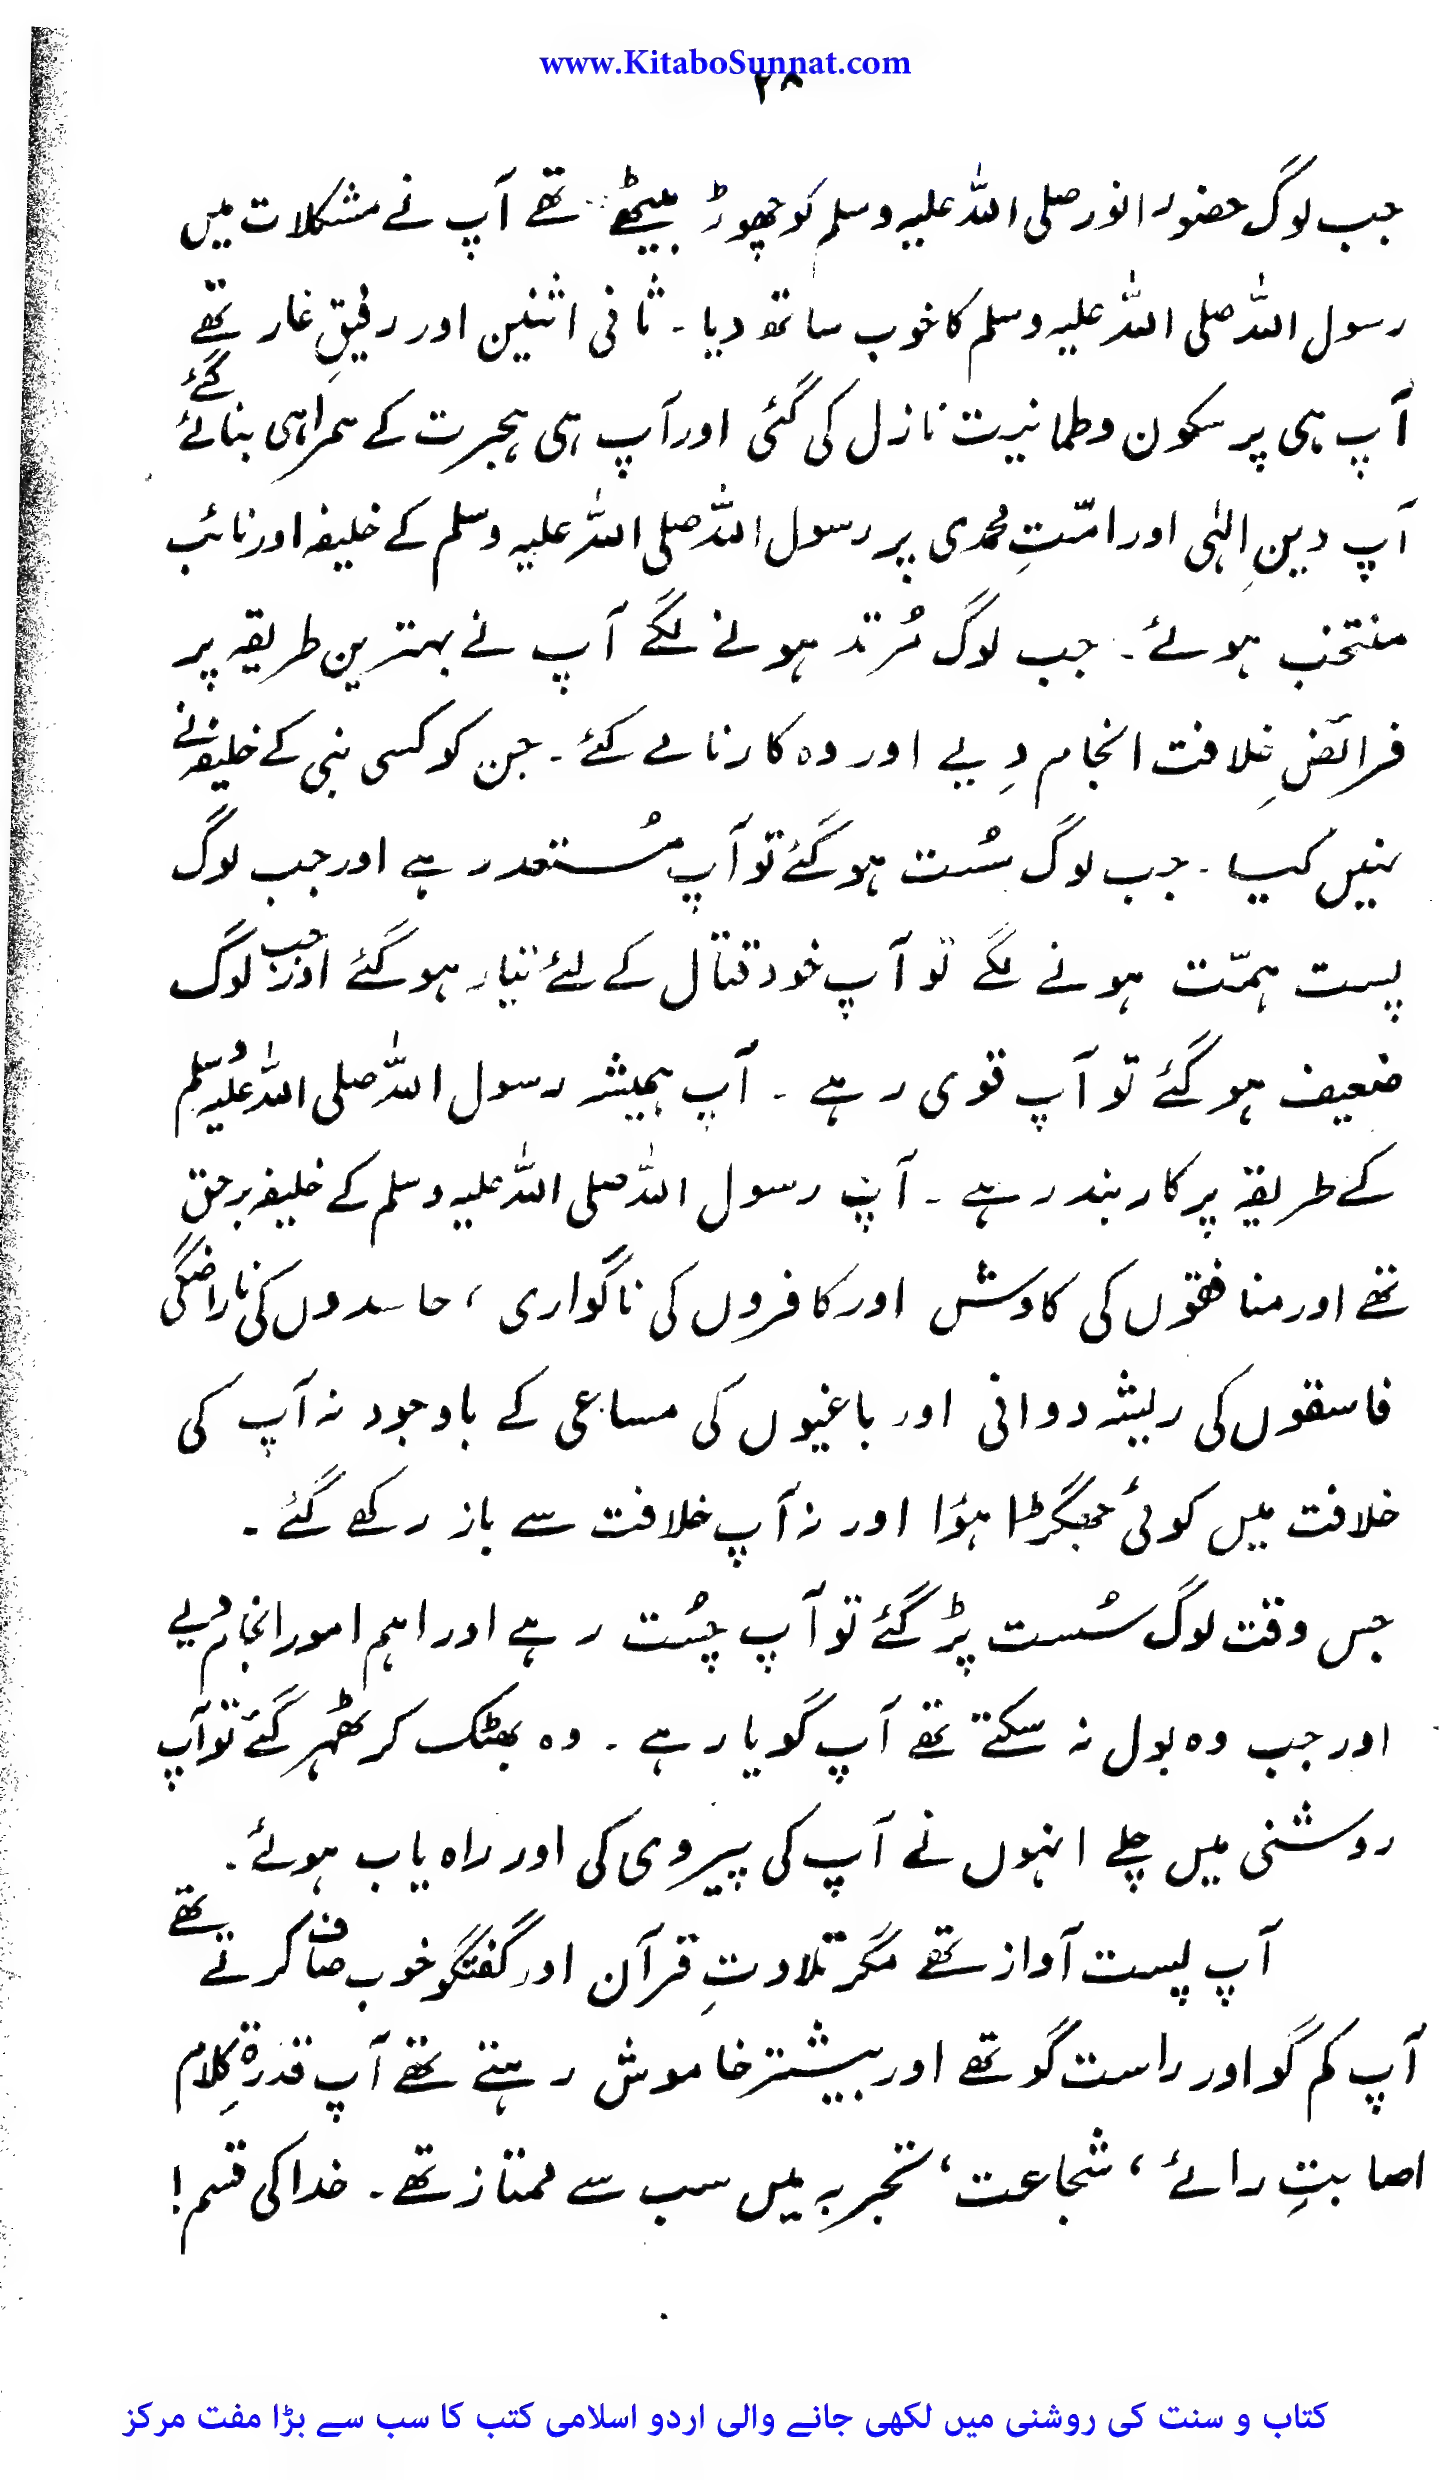 www.KitaboSunnat.com
۲۸
جب لوگ حضور انور صلی اللہ علیہ وسلم کو چھوڑ بیٹھے تھے آپ نے مشکلات میں
رسول اللہ صلی اللہ علیہ وسلم کا خوب ساتھ دیا۔ ثانی اثنین اور رفیقِ غار تھے
آپ ہی پر سکون وطمانیت نازل کی گئی اور آپ ہی ہجرت کے ہمراہی بنائے گئے
آپ دینِ الٰہی اور امّتِ محمدی پر رسول اللہ صلی اللہ علیہ وسلم کے خلیفہ اور نائب
منتخب ہوئے۔ جب لوگ مُرتد ہونے لگے آپ نے بہترین طریقہ پر
فرائضِ خلافت انجام دِیے اور وہ کارنامے کئے۔ جن کو کسی نبی کے خلیفہ نے
نہیں کیا۔ جب لوگ سُست ہو گئے تو آپ مُستعد رہے اور جب لوگ
پست ہمّت ہونے لگے تو آپ خود قتال کے لئے تیار ہو گئے اور جب لوگ
ضعیف ہو گئے تو آپ قوی رہے۔ آپ ہمیشہ رسول اللہ صلی اللہ علیہ وسلم
کے طریقہ پر کاربند رہے۔ آپ رسول اللہ صلی اللہ علیہ وسلم کے خلیفہ برحق
تھے اور منافقوں کی کاوش اور کافروں کی ناگواری، حاسدوں کی ناراضگی
فاسقوں کی ریشہ دوانی اور باغیوں کی مساعی کے باوجود نہ آپ کی
خلافت میں کوئی جھگڑا ہؤا اور نہ آپ خلافت سے باز رکھے گئے۔
جس وقت لوگ سُست پڑ گئے تو آپ چُست رہے اور اہم امور انجام دیے
اور جب وہ بول نہ سکتے تھے آپ گویا رہے۔ وہ بھٹک کر ٹھہر گئے تو آپ
روشنی میں چلے انہوں نے آپ کی پیروی کی اور راہ یاب ہوئے۔
آپ پست آواز تھے مگر تلاوتِ قرآن اور گفتگو خوب صاف کرتے تھے
آپ کم گو اور راست گو تھے اور بیشتر خاموش رہتے تھے آپ قدرۃِ کلام
اصابتِ رائے، شجاعت، تجربہ میں سب سے ممتاز تھے۔ خدا کی قسم!
کتاب و سنت کی روشنی میں لکھی جانے والی اردو اسلامی کتب کا سب سے بڑا مفت مرکز